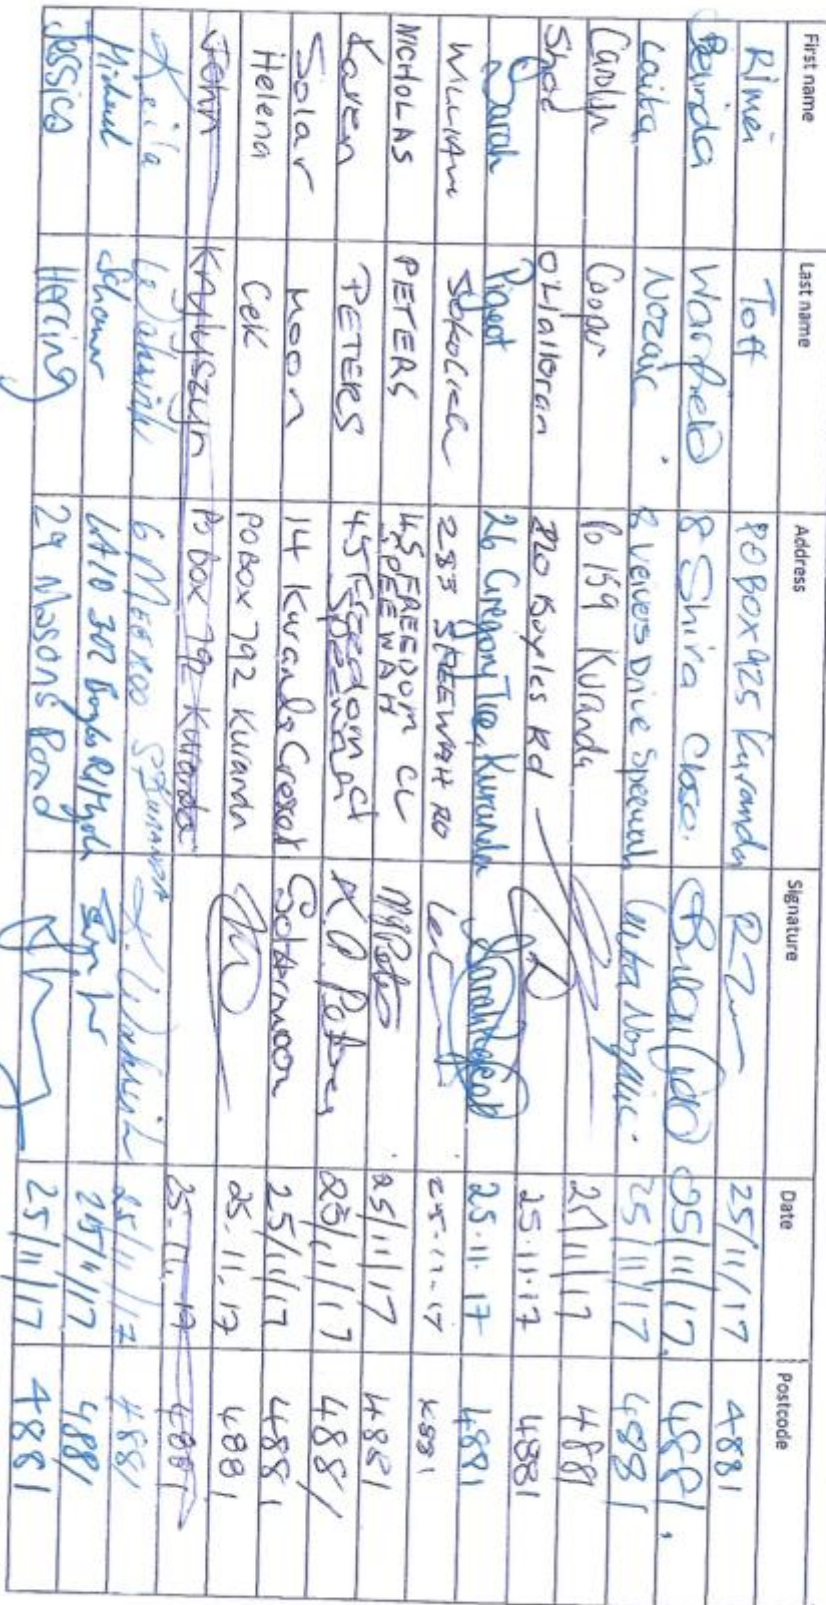 First name Last name Address Signature Date Postcode
Rimei Toft PO Box 925 Kuranda 25/11/17 4881
Belinda Warfield 8 Shira Close. 25/11/17, 4881,
Laita Nozaic 8 Veivers Drive Speewah Laita Nozaic 25/11/17 4881
Carolyn Cooper Po 159 Kuranda 25/11/17 4881
Shae O'Halloran Boyles Rd 25.11.17 4881
Sarah Pigeot 26 Gregory Tce, Kuranda 25.11.17 4881
WILLIAM 283 SPEEWAH RD 25-11-17 4881
NICHOLAS PETERS 45 FREEDOM CL SPEEWAH N Peters 25/11/17 4881
Karen PETERS 45 Freedom Cl Speewah K A Peters 25/11/17 4881
Solar Moon 14 Kuranda Cresent Solarmoon 25/11/17 4881
Helena Cek PO BOX 792 Kuranda 25.11.17 4881
John PO Box 792 Kuranda 25.11.17 4881
Keila 6 MEEROO ST KURANDA 25/11/17 4881
Michael 25/11/17 4881
Jessica Herring 29 Masons Road 25/11/17 4881